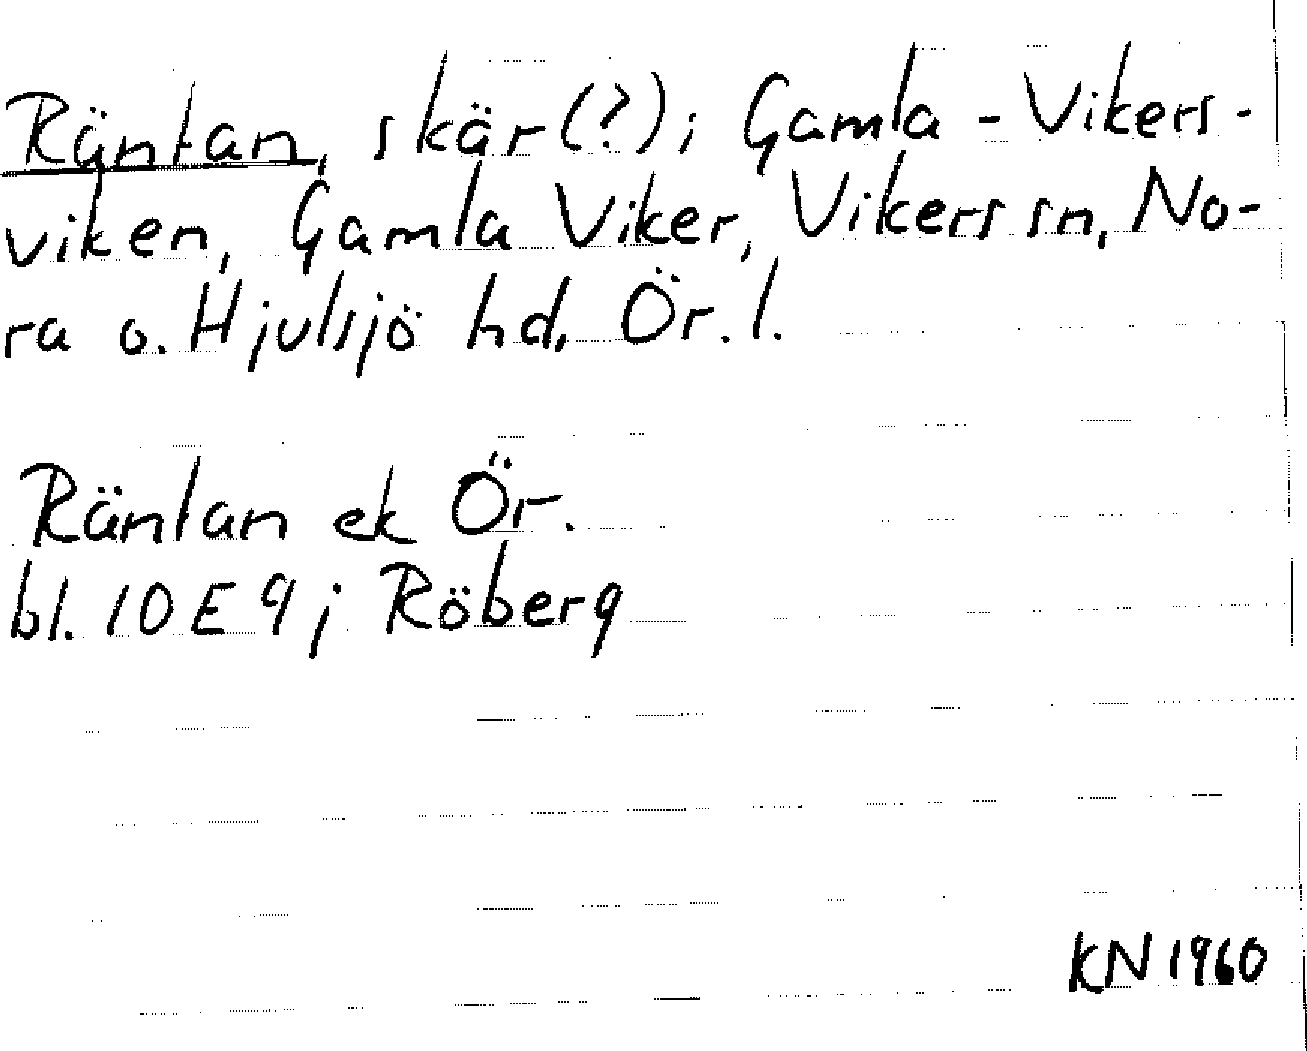 Räntan, skär (?); Gamla-Vikers-
viken, Gamla Viker, Vikers sn, No-
ra o. Hjulsjö hd, Ör. l.
Räntan ek Ör.
bl. 10 E 9; Röberg
KN 1960